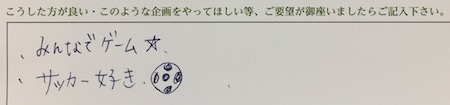 こうした方が良い・このような企画をやってほしい等、ご要望が御座いましたらご記入下さい。
、みんなでゲーム☆.
、サッカー好き.